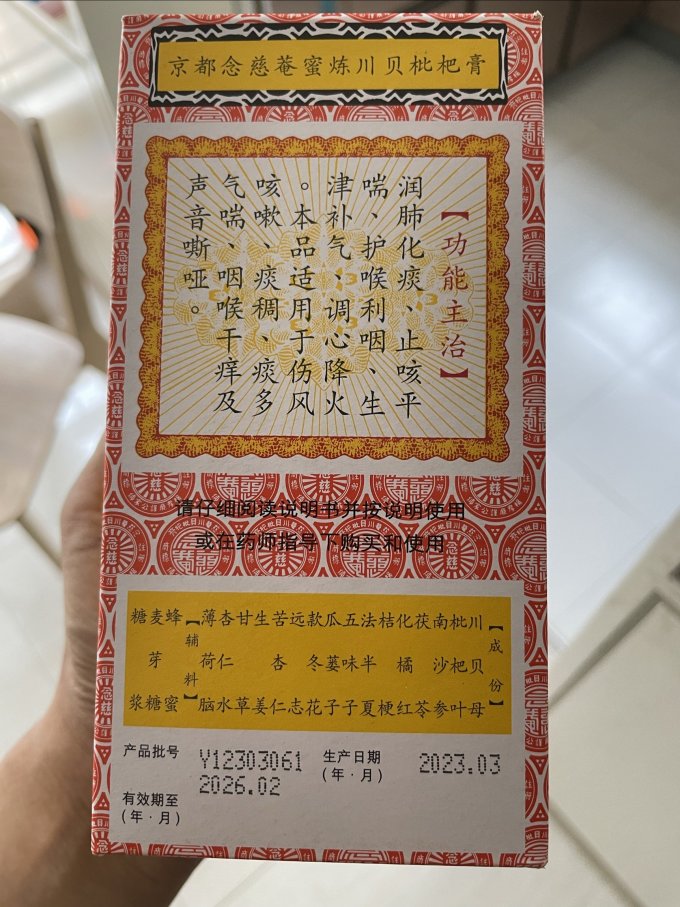 京都念慈菴蜜炼川贝枇杷膏
【功能主治】
润肺化痰、止咳平
喘、护喉利咽、生
津补气、调心降火
。本品适用于伤风
咳嗽、痰稠、痰多
气喘、咽喉干痒及
声音嘶哑。
请仔细阅读说明书并按说明使用
或在药师指导下购买和使用
【成份】
川贝母
枇杷叶
南沙参
茯苓
化橘红
桔梗
法半夏
五味子
瓜蒌子
款冬花
远志
苦杏仁
生姜
甘草
杏仁水
薄荷脑
【辅料】
蜂蜜
麦芽糖
糖浆
产品批号 Y12303061
生产日期 (年·月) 2023.03
有效期至 (年·月) 2026.02